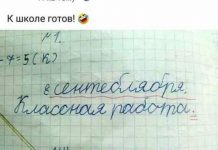 К школе готов! 🤣
№1.
-7=5(К)
8 сентебляября.
Классная работа.